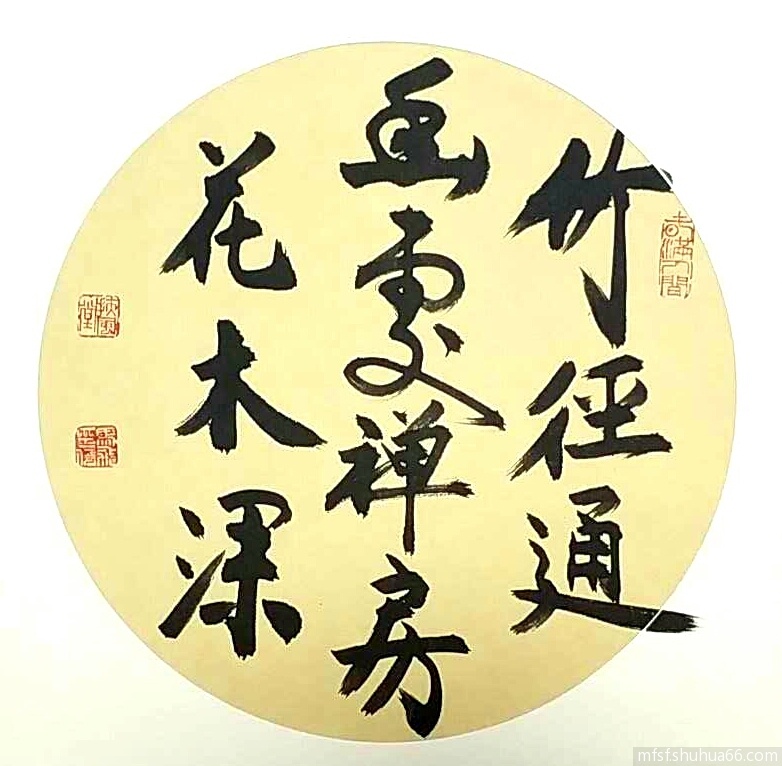 竹径通
幽处禅房
花木深
mfsfshuhua66.com